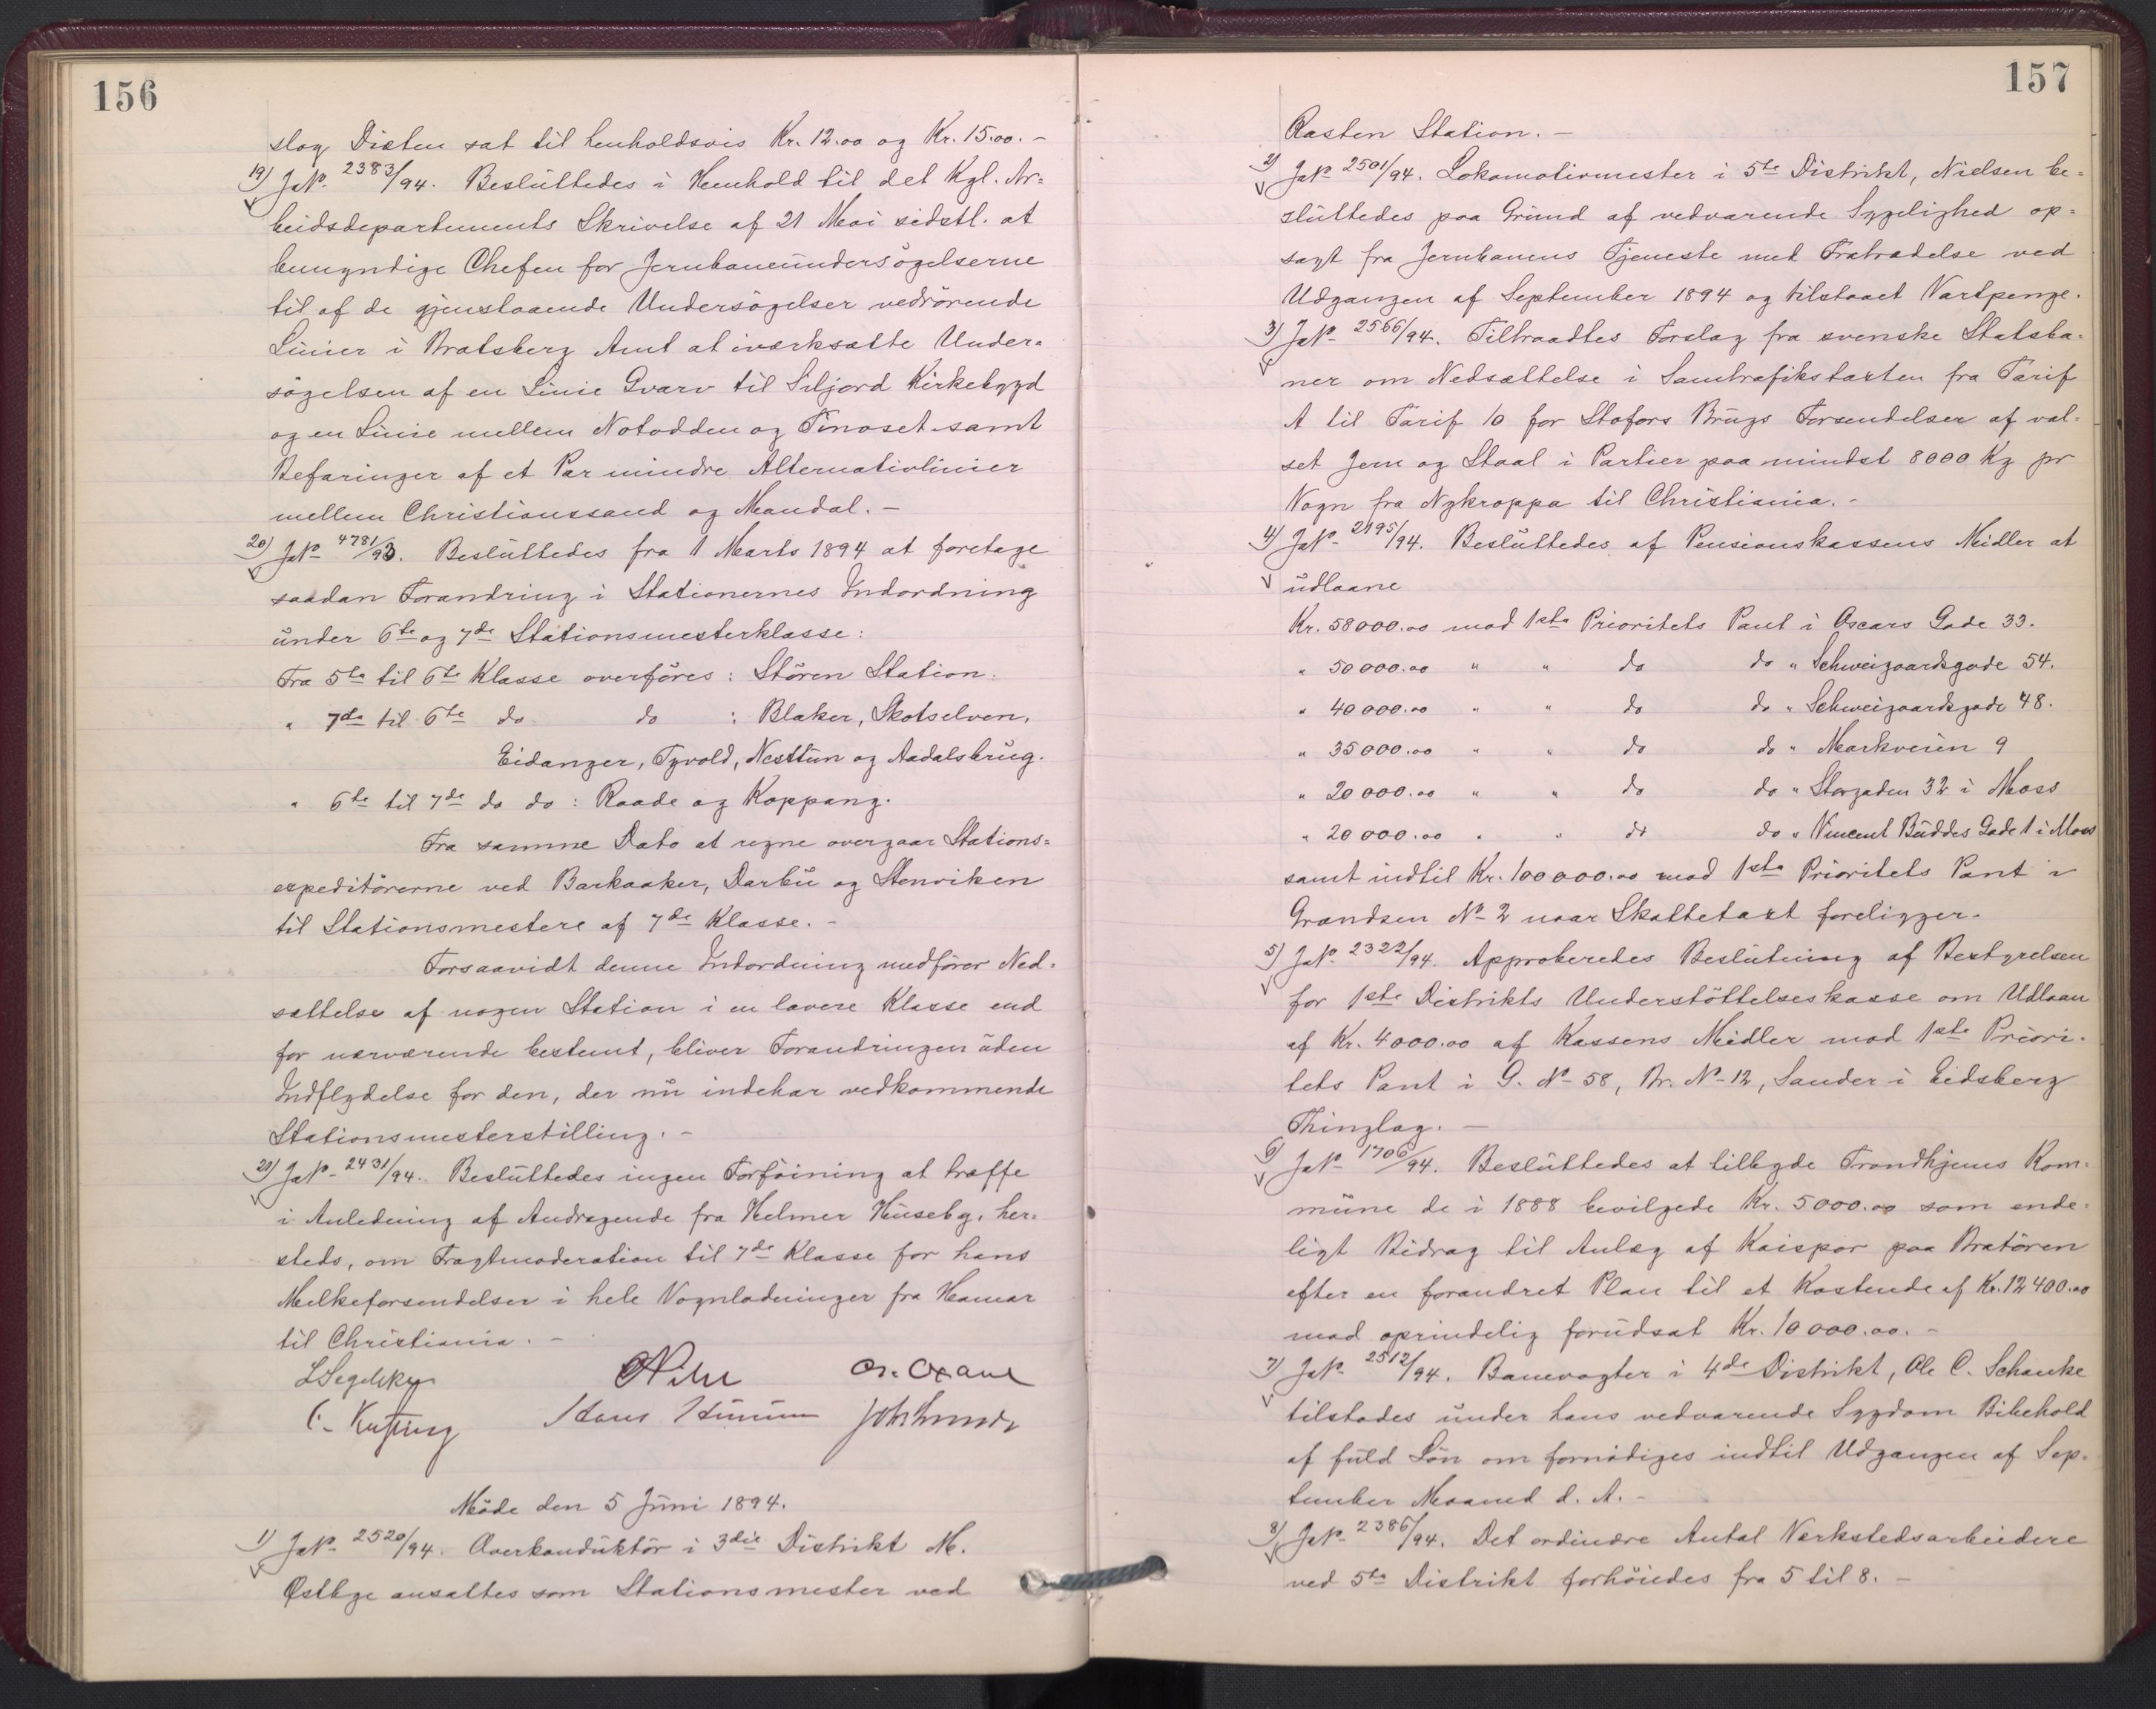 156
slog Diæten sat til henholdsvis Kr. 12.00 og Kr. 15.00. -
19) JNo. 2383/94. Besluttedes i Henhold til det Kgl. Ar=
beidsdepartements Skrivelse af 21 Mai sidstl. at
bemyndige Chefen for Jernbaneundersögelserne
til af de gjenstaaende Undersögelser vedrörende
Linier i Bratsberg Amt at iværksætte Under=
sögelsen af en Linie Gvarv til Siljord Kirkebygd
og en Linie mellem Notodden og Tinoset samt
Befaringer af et Par mindre Alternativlinier
mellem Christianssand og Mandal. -
20) JNo. 4781/93. Besluttedes fra 1 Marts 1894 at foretage
saadan Forandring i Stationernes Indordning
under 6te og 7de Stationsmesterklasse:
Fra 5te til 6te Klasse overföres: Stören Station.
" 7de til 6te do do : Blaker, Skotselven,
Eidanger, Tyvold, Nesttun og Aadalsbrug.
" 6te til 7de do do: Raade og Koppang.
Fra samme Dato at regne overgaar Stations=
expeditörerne ved Barkaaker, Darbu og Stenviken
til Stationsmestere af 7de Klasse. -
Forsaavidt denne Indordning medförer Ned=
sættelse af nogen Station i en lavere Klasse end
for nærværende bestemt, bliver Forandringen uden
Indflydelse for den, der nu indehar vedkommende
Stationsmesterstilling. -
21) JNo. 2431/94. Besluttedes ingen Forföining at træffe
i Anledning af Andragende fra Helmer Huseby, her=
steds, om Fragtmoderation til 7de Klasse for hans
Melkeforsendelser i hele Vognladninger fra Hamar
til Christiania. -
LSegelcke
Hans
Möde den 5 Juni 1894.
1) JNo. 2520/94. Overkonduktör i 3die Distrikt M.
Østbye ansattes som Stationsmester ved
157
Rasten Station. -
2) JNo. 2501/94. Lokomotivmester i 5te Distrikt, Nielsen be=
sluttedes paa Grund af vedvarende Sygelighed op=
sagt fra Jernbanens Tjeneste med Fratrædelse ved
Udgangen af September 1894 og tilstaaet Vartpenge.
3) JNo. 2566/94. Tiltraadtes Forslag fra svenske Statsba=
ner om Nedsættelse i Samtrafikstaxten fra Tarif
A til Tarif 10 for Stofors Brugs Forsendelser af val=
set Jern og Staal i Partier paa mindst 8000 Kg pr
Vogn fra Nykroppa til Christiania. -
4) JNo. 2195/94. Besluttedes af Pensionskassens Midler at
udlaane
Kr. 58000.00 mod 1ste Prioritets Pant i Oscars Gade 33.
" 50000.00 " " do do " Schweigaardsgade 54.
" 40000.00 " " do do " Schweigaardsgade 48.
" 35000.00 " " do do " Markveien 9
" 20000.00 " " do do " Storgaden 32 i Moss
" 20000.00 " " do do " Vincent Buddes Gade 1 i Moss
samt indtil Kr. 100000.00 mod 1ste Prioritets Pant i
Grændsen No 2 naar Skattetaxt foreligger.
5) JNo. 2322/94. Approberedes Beslutning af Bestyrelsen
for 1ste Distrikts Understöttelseskasse om Udlaan
af Kr. 4000.00 af Kassens Midler mod 1ste Priori=
tets Pant i G. No 58, Br. No 12, Sander i Eidsberg
Thinglag. -
6) JNo. 1706/94. Besluttedes at tilbyde Trondhjems Kom=
mune de i 1888 bevilgede Kr. 5000.00 som ende=
ligt Bidrag til Anlæg af Kaispor paa Bratören
efter en forandret Plan til et Kostende af Kr. 12400.00
mod oprindelig forudsat Kr. 10000.00. -
7) JNo. 2512/94. Banevogter i 4de Distrikt, Ole C. Schanke
tilstodes under hans vedvarende Sygdom Bibehold
af fuld Lön om fornödiges indtil Udgangen af Sep=
tember Maaned d. A. -
8) JNo. 2386/94. Det ordinære Antal Værkstedsarbeidere
ved 5te Distrikt forhöiedes fra 5 til 8. -